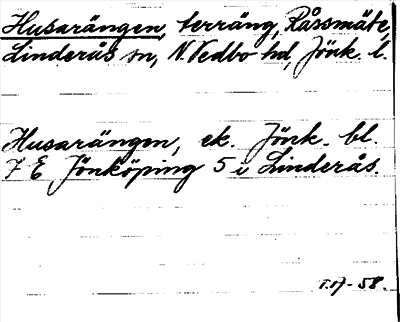 Husarängen, terräng, Råssmäte,
Linderås sn, N. Vedbo hd, Jönk. l.
Husarängen, ek. Jönk. bl.
7 E Jönköping 5 i Linderås.
-58.